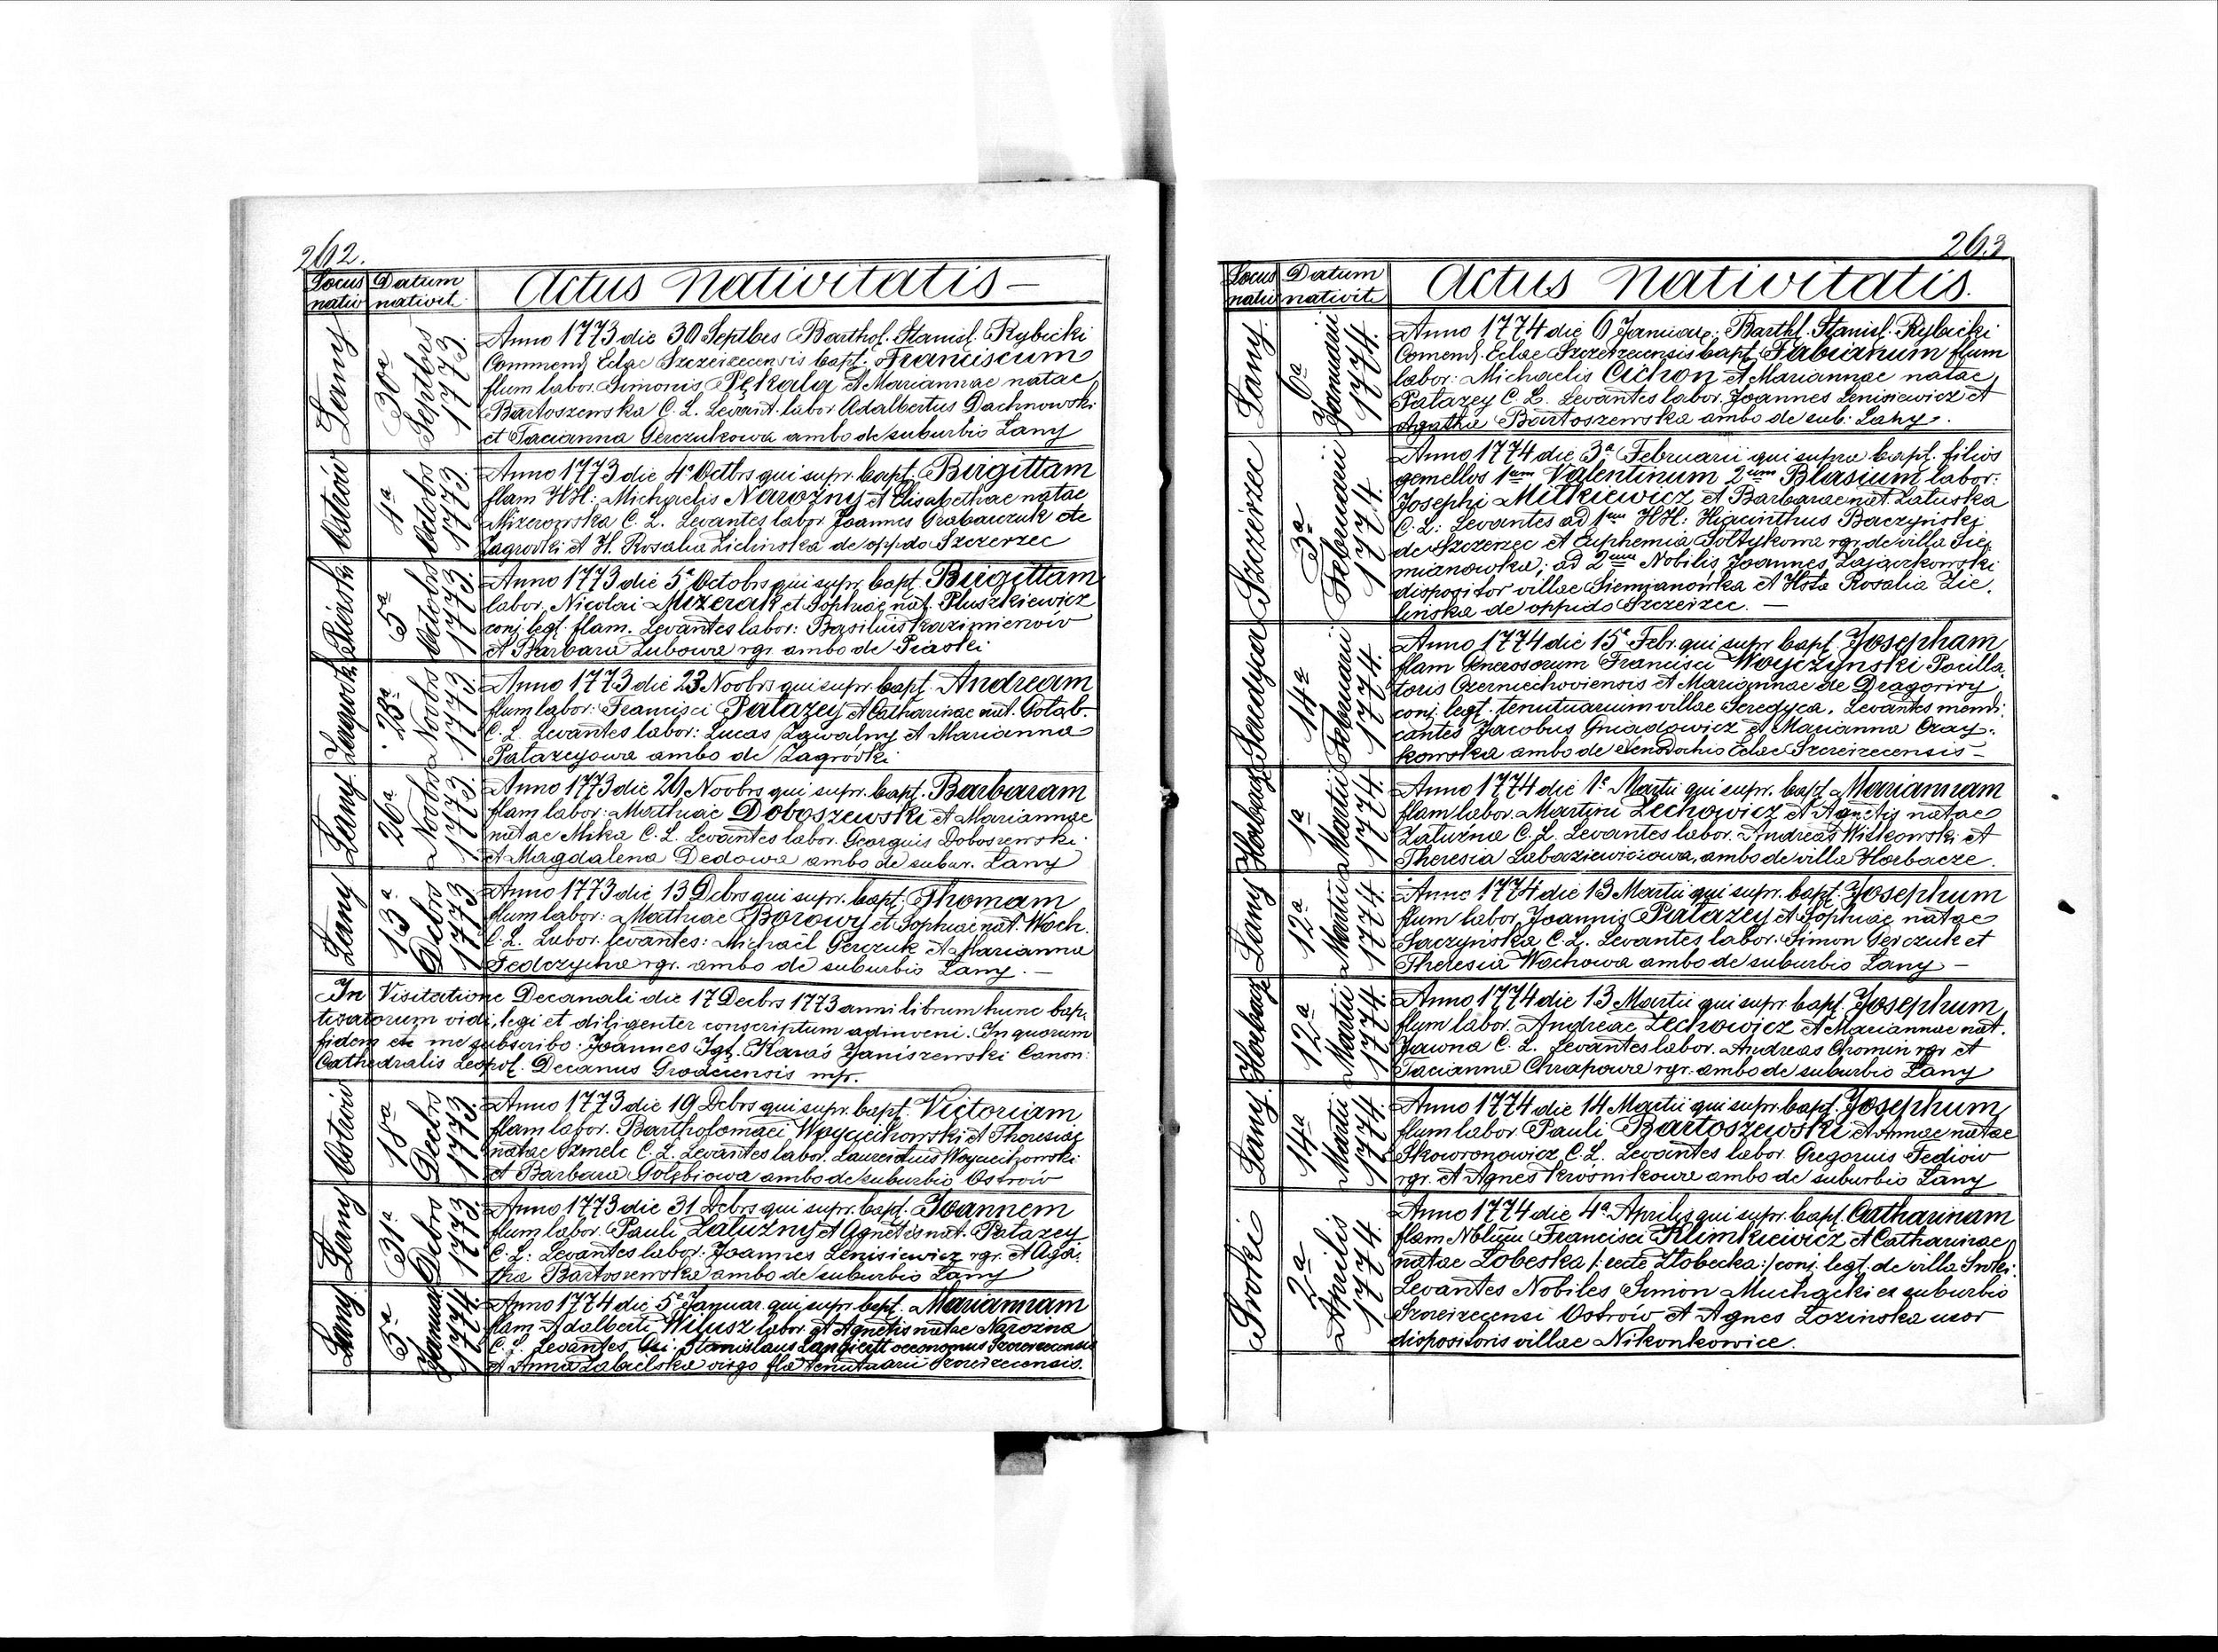 262.
Locus nativ
Datum nativit.
Actus Nativitatis —
Łany
30a Septbrs 1773.
Anno 1773 die 30 Septbrs Barthol. Stanisl. Rybicki
Commend. Eclae Szczeirecensis bapt. Franciscum
flum labor. Simonis Pękala et Mariannae natae
Bartoszewska C. L. Levant. labor Adalbertus Dachnowski
et Tacianna Gerczukowa ambo de suburbio Łany
Ostrów
4a Octobr 1773.
Anno 1773 die 4a Octbrs qui supr. bapt. Birgittam
flam HH: Michaelis Narożny et Elisabethae natae
Mizerowska C. L. Levantes labor. Joannes Grabarczuk de
Zagrodki et H. Rosalia Zielinska de oppdo Szczerzec
Piaski
5a Octobr 1773.
Anno 1773 die 5a Octobrs qui supr. bapt. Birgittam
labor. Nicolai Mizerak et Sophiae nat. Pluszkiewicz
conj. legt. flam. Levantes labor: Basilius Kazimierow
et Barbara Lubowa rgr. ambo de Piaski
Zagrodki
23a Novbrs 1773.
Anno 1773 die 23 Novbrs qui supr. bapt. Andream
flum labor: Francisci Patazey et Catharinae nat. Gołąb.
C. L. Levantes labor: Lucas Zawalny et Marianna
Patazeyowa ambo de Zagrodki
Łany
26a Novbrs 1773.
Anno 1773 die 26 Novbrs qui supr. bapt. Barbaram
flam labor: Mathiae Doboszewski et Mariannae
natae Mika C. L. Levantes labor. Georguis Doboszewski
et Magdalena Dedowa ambo de subur. Łany
Łany
13a Debrs 1773.
Anno 1773 die 13 Debrs qui supr. bapt. Thomam
flum labor: Mathiae Borowy et Sophiae nat. Woch.
C. L. Labor. levantes: Michaël Gerczuk et Marianna
Fedczycha rgr. ambo de suburbio Łany. —
In Visitatione Decanali die 17 Decbrs 1773 anni librum hunc bap
tisatorum vidi, legi et diligenter conscriptum adinveni. In quorum
fidem etc me subscribo. Joannes Igt. Karaś Janiszewski Canon:
Cathedralis Leopol. Decanus Grodecensis mpr.
Ostrów
18a Decbrs 1773.
Anno 1773 die 19 Debrs qui supr. bapt. Victoriam
flam labor. Bartholomaei Woyciechowski et Theresiae
natae Szmelc C. L. Levantes labor. Laurentius Woyciechowski
et Barbara Gołębiowa ambo de suburbio Ostrów
Łany
31a Debrs 1773.
Anno 1773 die 31 Debrs qui supr. bapt. Joannem
flum labor. Pauli Załużny et Agnetis nat. Patazey
C. L.: Levantes labor: Joannes Lenisiewicz rgr. et Aga-
tha Bartoszewska ambo de suburbio Łany
Łany
5a Januar 1774.
Anno 1774 die 5a Januar. qui supr. bapt. Mariannam
flam Adalberti Wilusz labor et Agnetis natae Narożna
C. L. Levantes Gsi: Stanislaus oeconomus Szczeirecensis
et Anna Zabielska virgo fla tenutarii Szczeirecensis.
263
Locus nativ
Datum nativit
Actus Nativitatis.
Łany
6a Januarii 1774.
Anno 1774 die 6 Januar.: Barthl. Stanisl. Rybicki
Comend. Eclae Szczeirzecensis bapt. Fabianum flum
labor: Michaelis Cichoń et Mariannae natae
Patazey C. L. Levantes labor. Joannes Lenisiewicz et
Agatha Bartoszewska ambo de sub: Łany.
Szczerzec
3a Februarii 1774.
Anno 1774 die 3a Februarii qui supra bapt. filios
gemellos 1um Valentinum 2um Blasium labor:
Josephi Mitkiewicz et Barbarae nat. Łatuska
C. L.: Levantes ad 1um HH: Hiacinthus Baczyński
de Szczerzec et Euphemia Sołtykowa rgr. de villa Sie-
mianowka; ad 2um Nobilis Joannes Zajączkowski
dispositor villae Siemianowka et Hsta Rosalia Zie-
linska de oppido Szczeirzec. —
Seredyca
14a Februarii 1774.
Anno 1774 die 15a Febr. qui supr. bapt. Josepham
flam Generosorum Francisci Woyczynski Pocilla-
toris Czerniechoviensis et Mariannae de Dragoriry
conj. legt. tenutuarium villae Seredyca. Levantes mendi-
cantes Jacobus Gniadowicz et Marianna Czay-
kowska ambo de Xenodochio Eclae Szczeirzecensis —
Horbacze
1a Martii 1774.
Anno 1774 die 1a Martii qui supr. bapt. Mariannam
flam labor. Martini Lechowicz et Agnetis natae
Załuźna C. L. Levantes labor. Andreas Witkowski et
Theresia Labaziewiczowa, ambo de villa Horbacze.
Łany
12a Martii 1774.
Anno 1774 die 13 Martii qui supr. bapt. Josephum
flum labor. Joannis Patazey et Sophiae natae
Saczyńska C. L. Levantes labor. Simon Gerczuk et
Theresia Wochowa ambo de suburbio Łany —
Horbacze
12a Martii 1774.
Anno 1774 die 13 Martii qui supr. bapt. Josephum
flum labor. Andreae Lechowicz et Mariannae nat.
Jawna C. L. Levantes labor. Andreas Chomin rgr et
Tacianna Chrapowa rgr. ambo de suburbio Łany
Łany
14a Martii 1774.
Anno 1774 die 14 Martii qui supr. bapt. Josephum
flum labor Pauli Bartoszewski et Annae natae
Skowronowicz C. L. Levantes labor. Gregorius Fediow
rgr. et Agnes Krośnikowa ambo de suburbio Łany
Sroki
2a Aprilis 1774.
Anno 1774 die 4a Aprilis qui supr. bapt. Catharinam
flam Nblium Francisci Klimkiewicz et Catharinae
natae Łobeska /: recte Złobecka :/ conj. legt. de villa Sroki.
Levantes Nobiles Simon Muchacki ex suburbio
Szczeirecensi Ostrów et Agnes Łozinska uxor
dispositoris villae Nikonkowice.